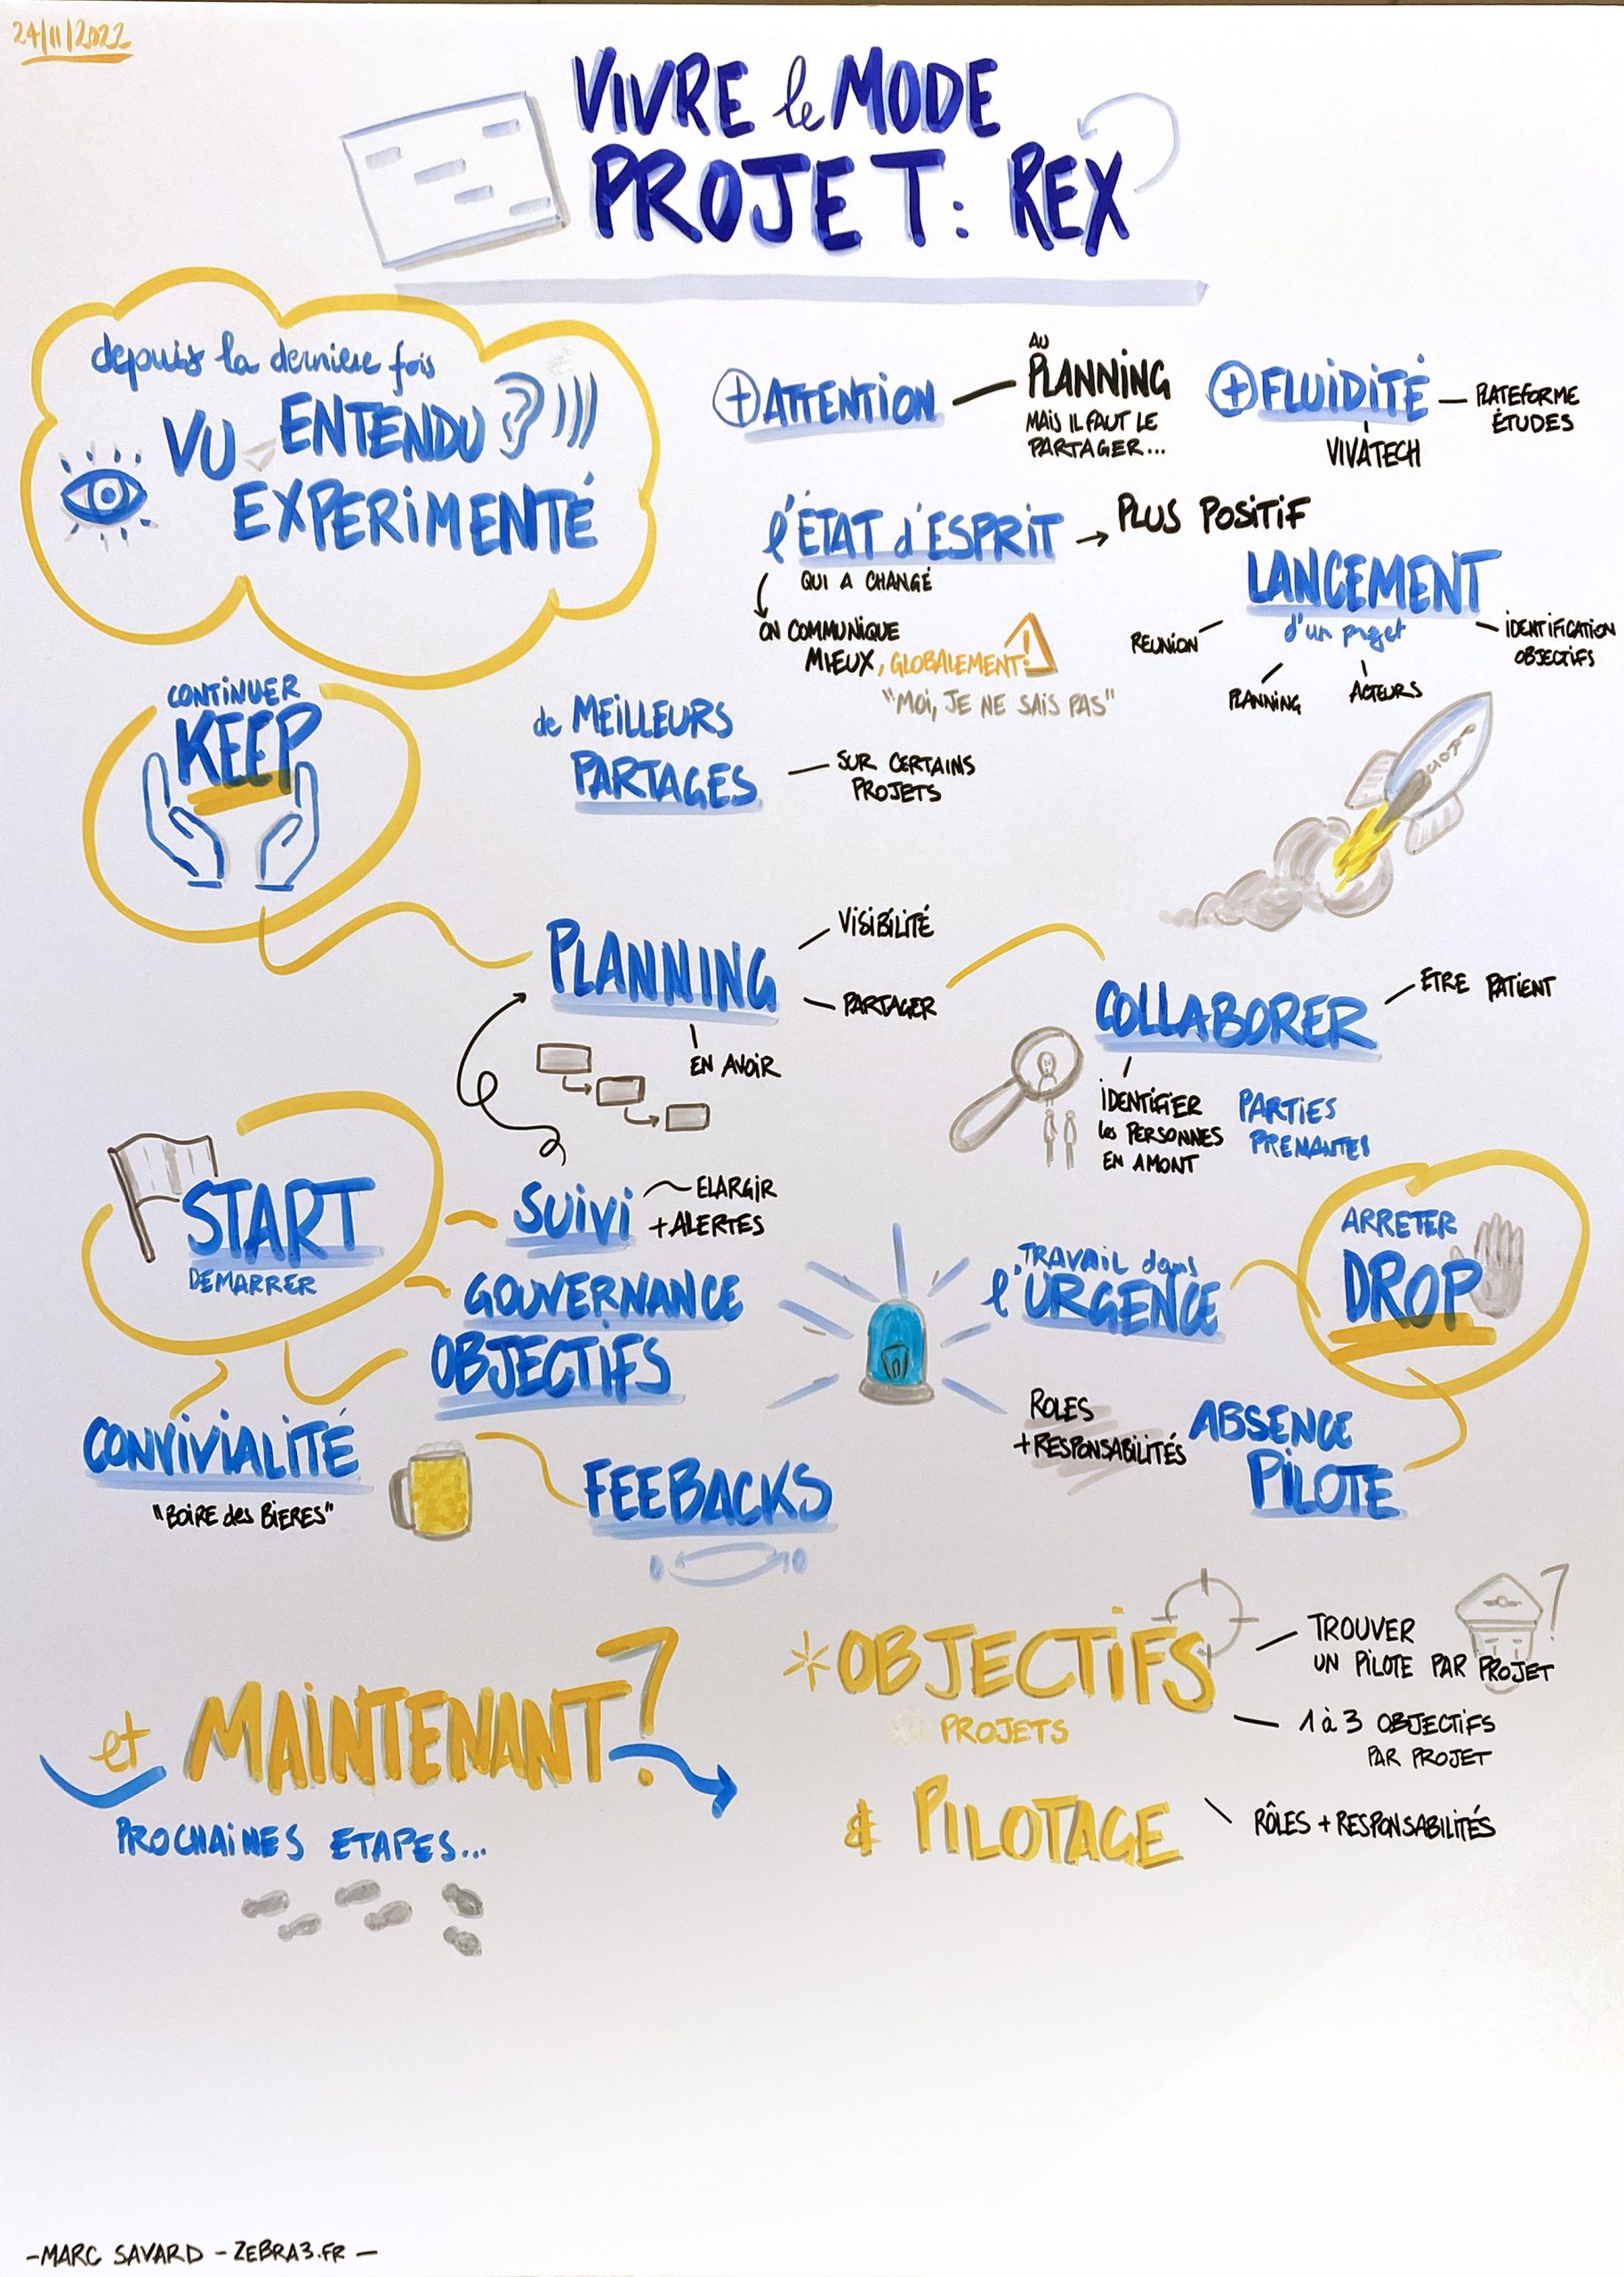 24/11/2022
VIVRE le MODE
PROJET: REX
depuis la dernière fois
VU ENTENDU
EXPERIMENTÉ
+ ATTENTION
AU
PLANNING
MAIS IL FAUT LE
PARTAGER...
+ FLUIDITÉ
PLATEFORME
ÉTUDES
VIVATECH
l'ÉTAT d'ESPRIT
PLUS POSITIF
QUI A CHANGÉ
ON COMMUNIQUE
MIEUX, GLOBALEMENT!
"MOI, JE NE SAIS PAS"
LANCEMENT
d'un projet
REUNION
PLANNING
ACTEURS
IDENTIFICATION
OBJECTIFS
de MEILLEURS
PARTAGES
SUR CERTAINS
PROJETS
CONTINUER
KEEP
PLANNING
VISIBILITÉ
PARTAGER
EN AVOIR
COLLABORER
ETRE PATIENT
IDENTIFIER
les PERSONNES
EN AMONT
PARTIES
PRENANTES
START
DEMARRER
SUIVI
ELARGIR
+ ALERTES
GOUVERNANCE
OBJECTIFS
CONVIVIALITÉ
"BOIRE des BIERES"
FEEBACKS
ARRETER
DROP
TRAVAIL dans
l'URGENCE
ABSENCE
PILOTE
ROLES
+ RESPONSABILITÉS
et MAINTENANT?
PROCHAINES ETAPES...
* OBJECTIFS
PROJETS
& PILOTAGE
TROUVER
UN PILOTE PAR PROJET
?
1 à 3 OBJECTIFS
PAR PROJET
RÔLES + RESPONSABILITÉS
- MARC SAVARD - ZEBRA3.FR -